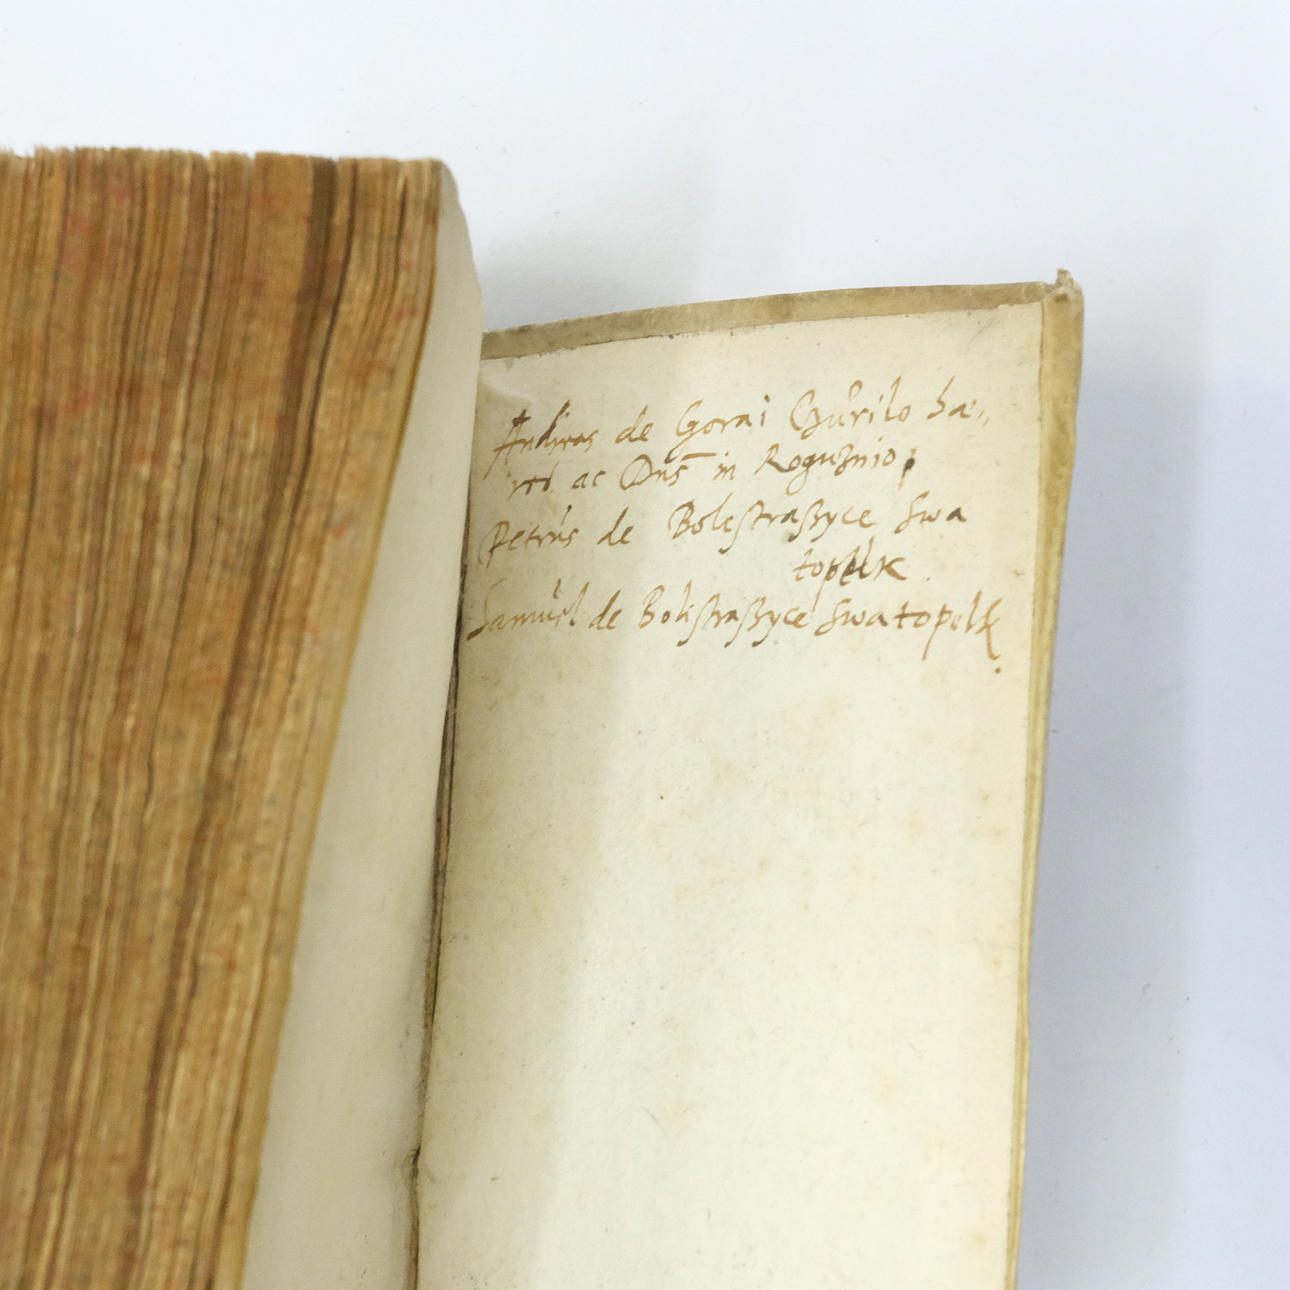 Andreas de Gorai Czŭrilo hæ,,
res ac Dns̄ in Roguznio,
Petrŭs de Bolestraszyce Swa
topelk
Samŭel de Bolestraszyce Swatopelk.